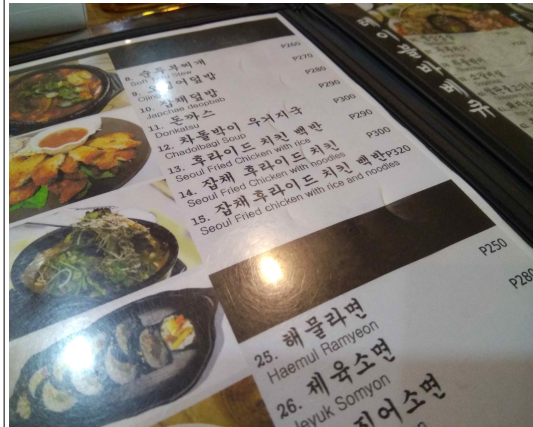 P260
8. 순두부찌개
Soft Tofu Stew
P270
9. 오징어덮밥
P280
10. 잡채덮밥
Japchae deopbab
P290
11. 돈까스
Donkatsu
P300
12. 차돌박이 우거지국
Chadolbagi Soup
P290
13. 후라이드 치킨 백반
Seoul Fried Chicken with rice
P300
14. 잡채 후라이드 치킨
Seoul Fried Chicken with noodles
15. 잡채후라이드 치킨 백반 P320
Seoul Fried chicken with rice and noodles
P250
25. 해물라면
Haemul Ramyeon
P280
26. 제육소면
Jeyuk Somyon
징어소면
테이블바베큐